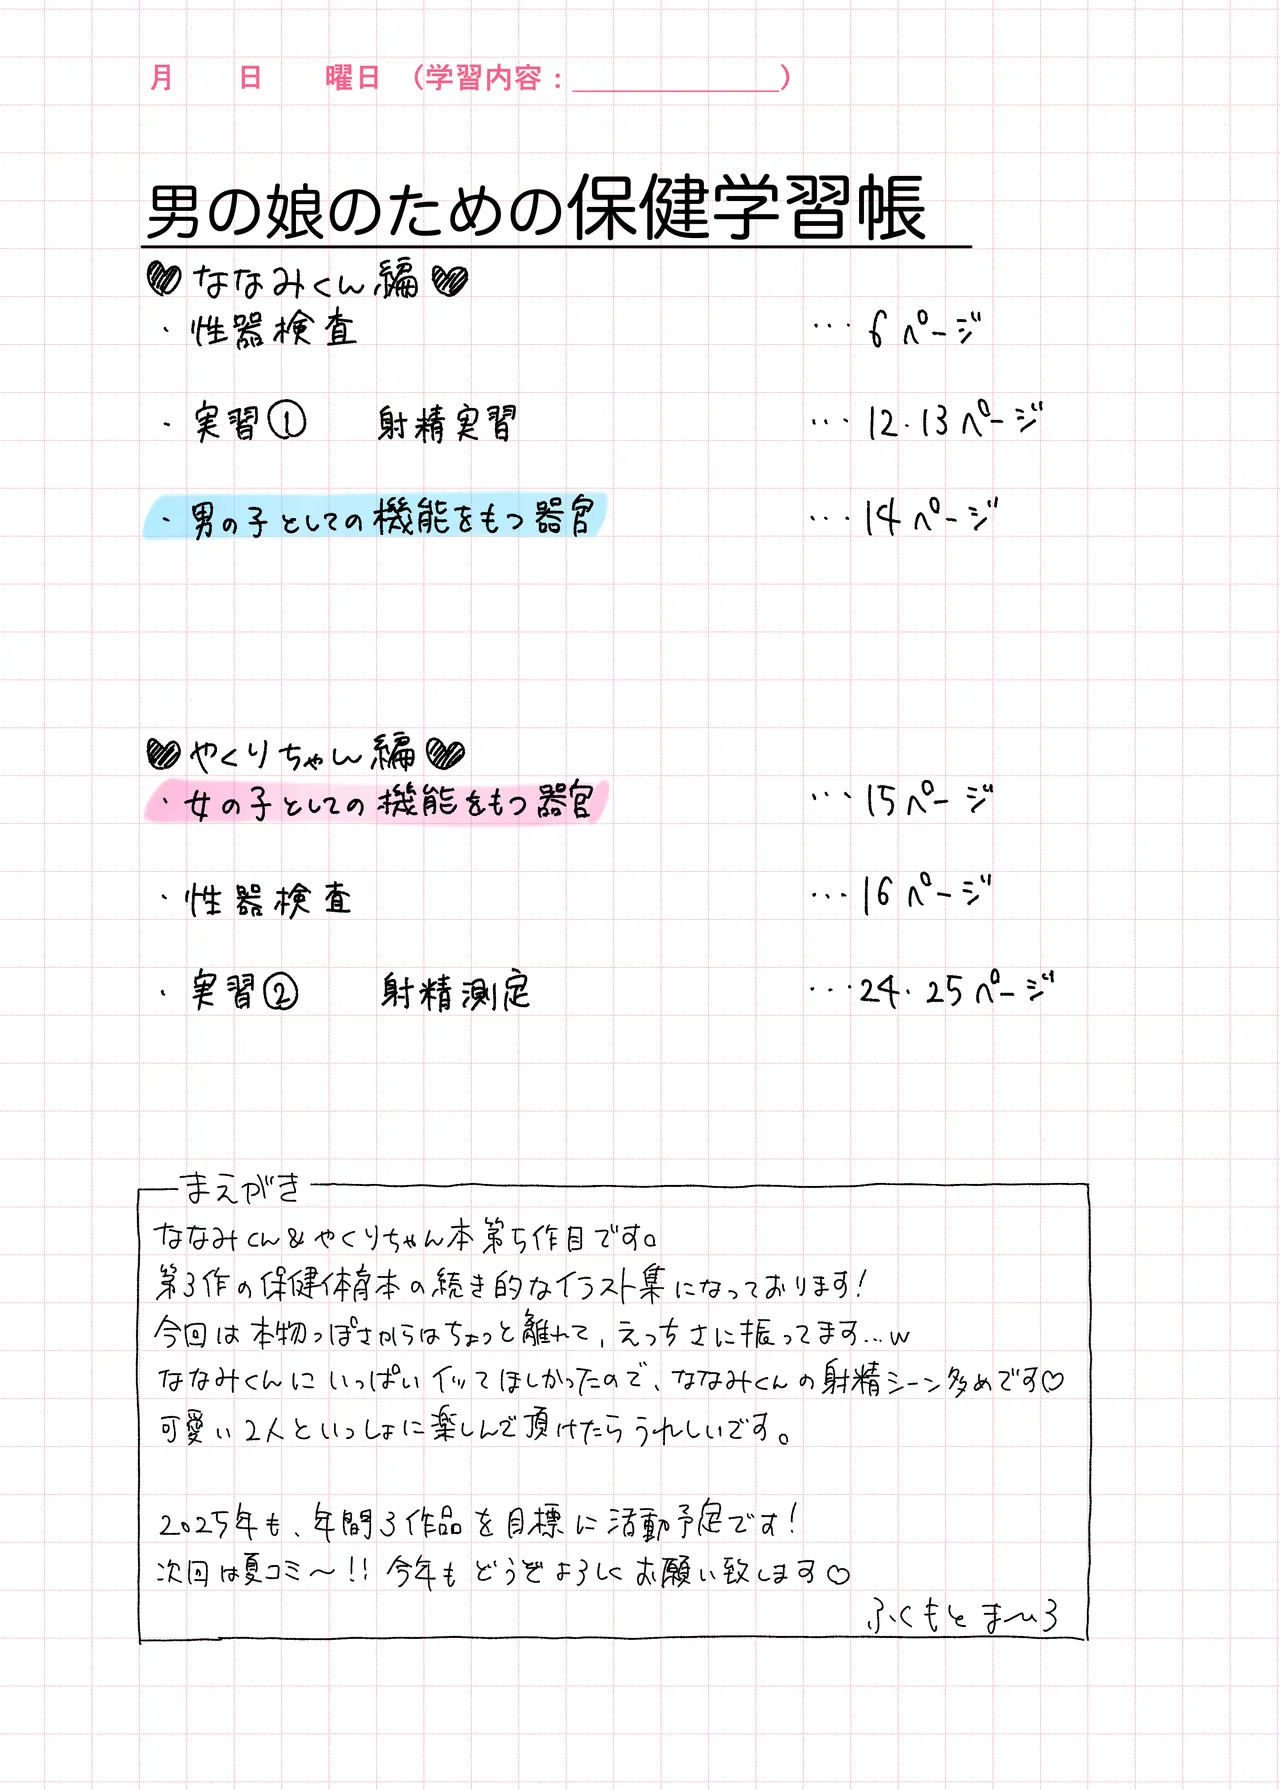 月 日 曜日 （学習内容：＿＿＿＿＿＿＿）
男の娘のための保健学習帳
♥ななみくん編♥
・性器検査 …6ページ
・実習① 射精実習 …12.13ページ
・男の子としての機能をもつ器官 …14ページ
♥やくりちゃん編♥
・女の子としての機能をもつ器官 …15ページ
・性器検査 …16ページ
・実習② 射精測定 …24.25ページ
まえがき
ななみくん&やくりちゃん本第5作目です。
第3作の保健体育本の続き的なイラスト集になっております！
今回は本物っぽさからはちょっと離れて、えっちさに振ってます…w
ななみくんにいっぱいイッてほしかったので、ななみくんの射精シーン多めです♡
可愛い2人といっしょに楽しんで頂けたらうれしいです。
2025年も、年間3作品を目標に活動予定です！
次回は夏コミ〜!! 今年もどうぞよろしくお願い致します♡
ふくもとまーろ